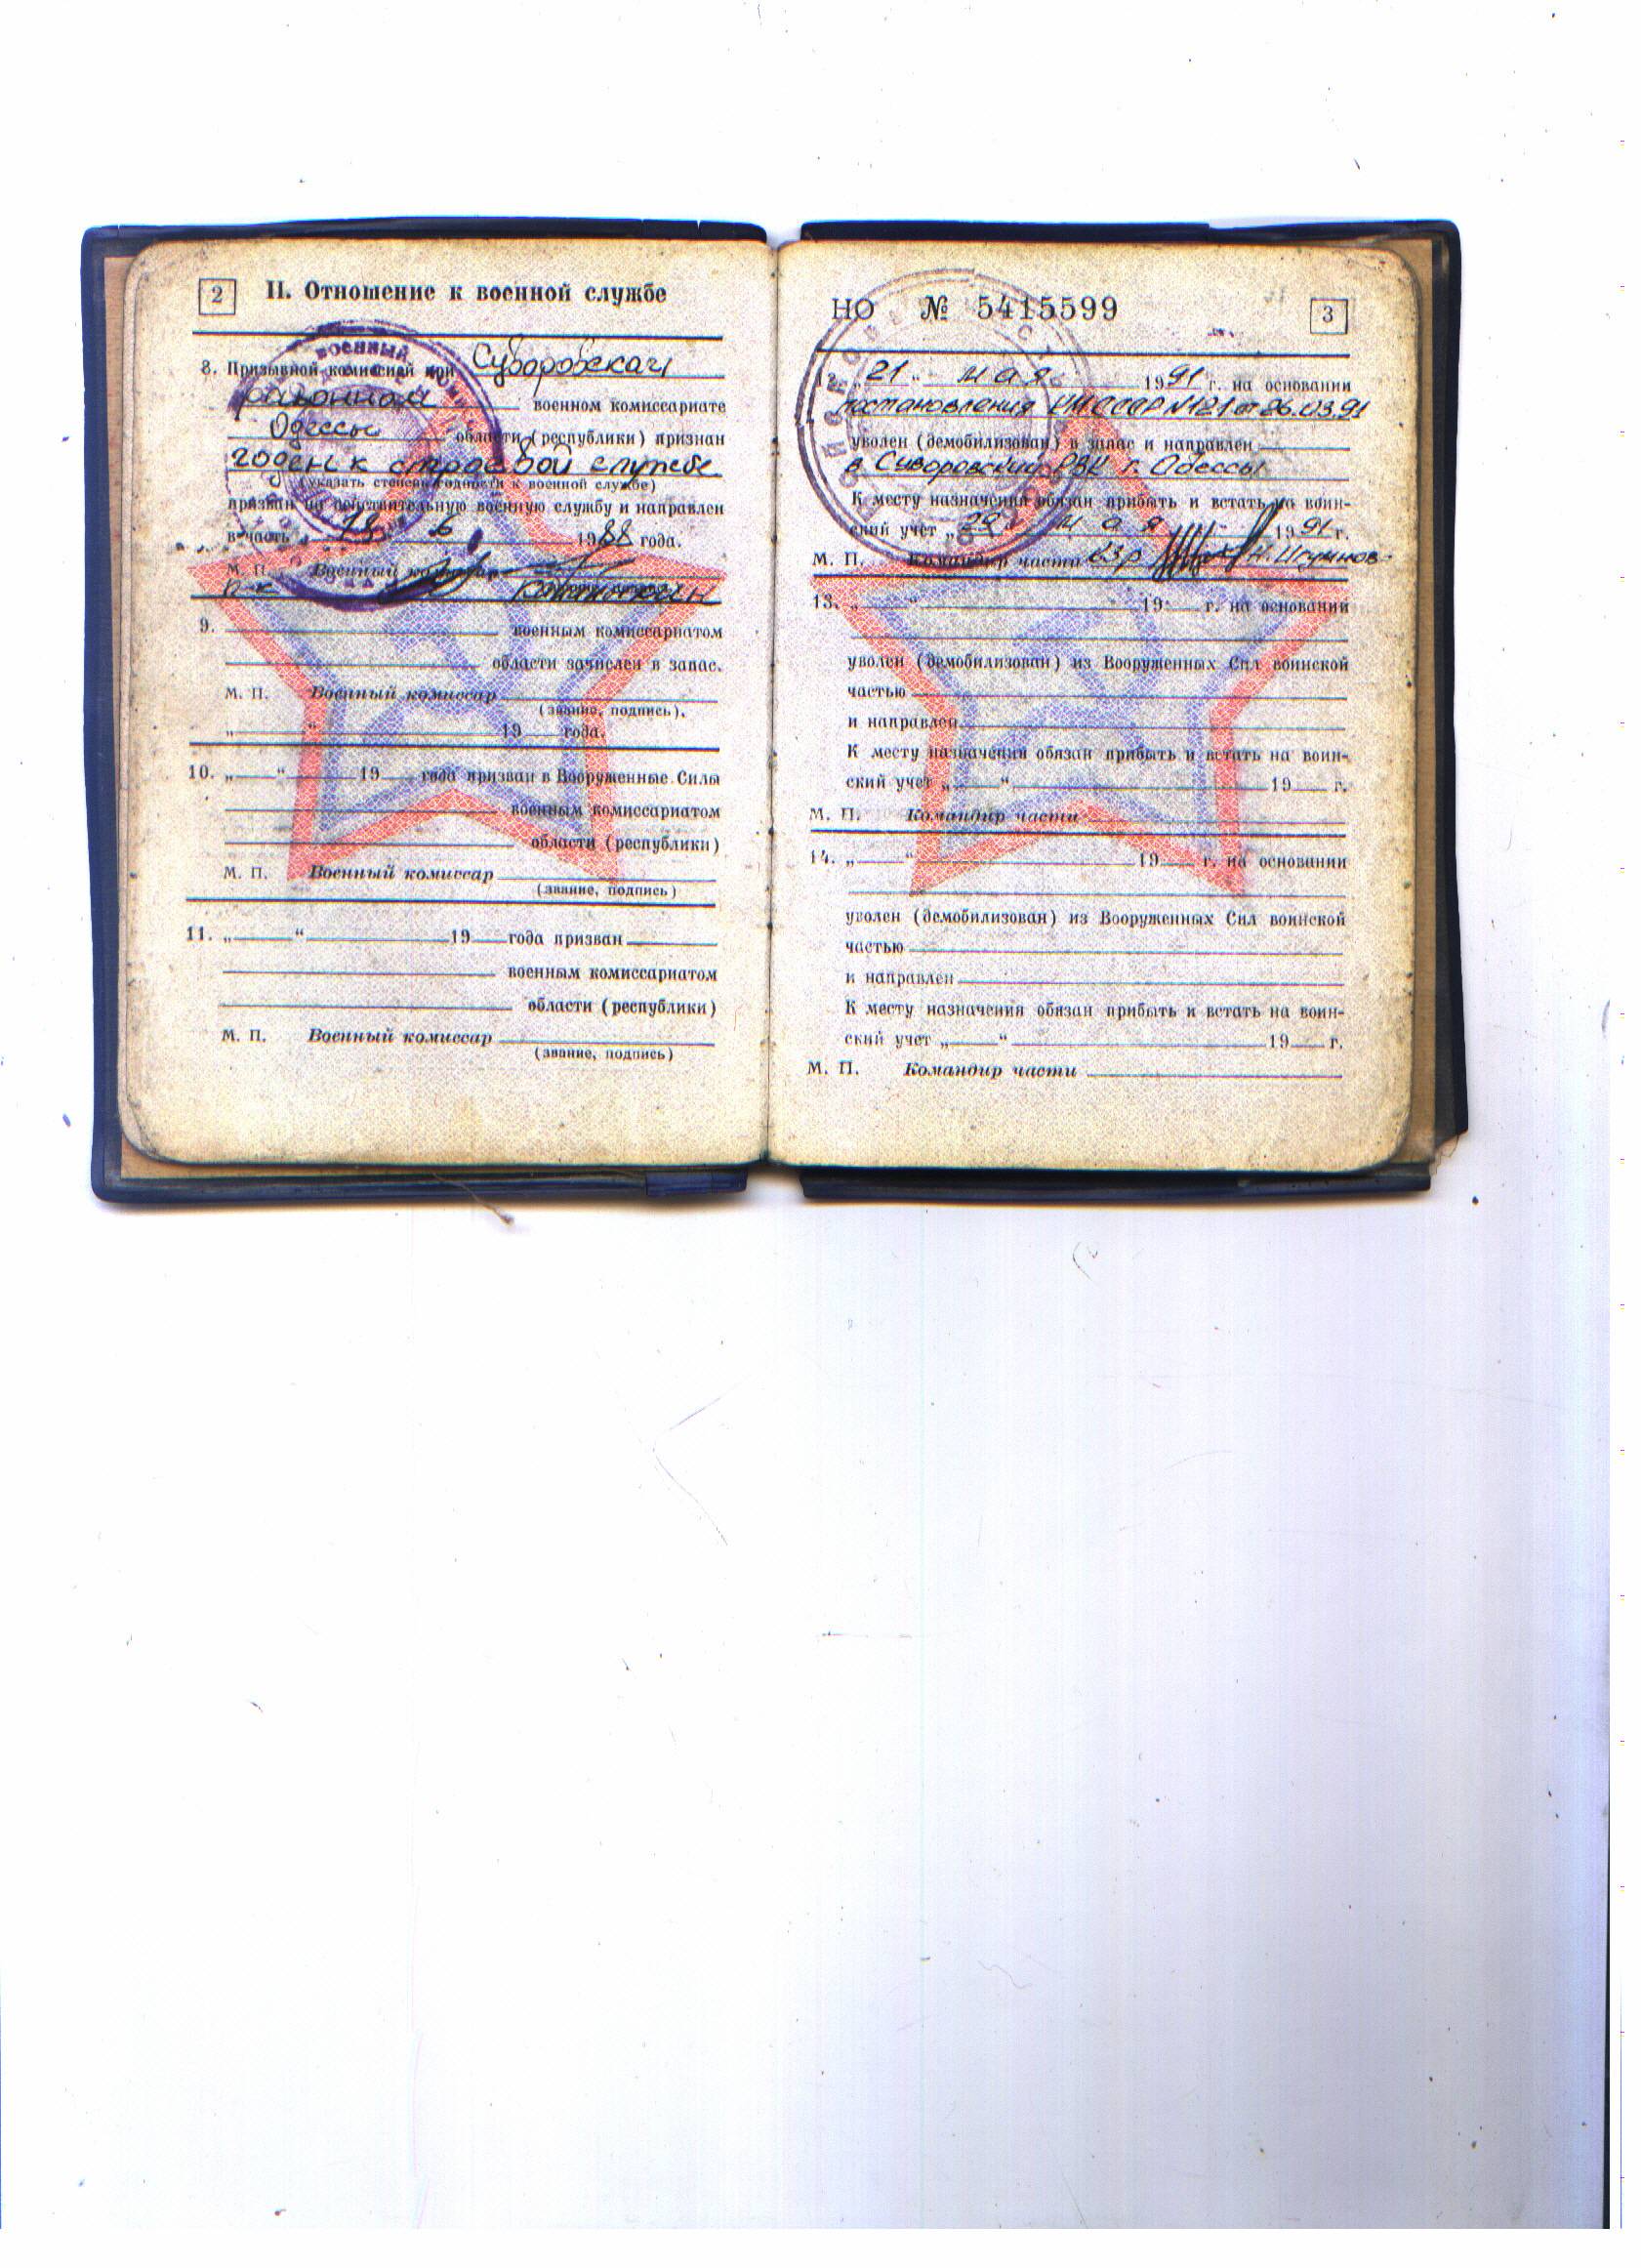 2
II. Отношение к военной службе
8. Призывной комиссией при Суворовском
районном военном комиссариате
Одессы области (республики) признан
годен к строевой службе
(указать степень годности к военной службе)
призван на действительную военную службу и направлен
в часть 18 6 1988 года.
М. П. Военный комиссар
п-к
9. военным комиссариатом
области зачислен в запас.
М. П. Военный комиссар
(звание, подпись).
„ “ 19 года.
10. „ “ 19 года призван в Вооруженные Силы
военным комиссариатом
области (республики)
М. П. Военный комиссар
(звание, подпись)
11. „ “ 19 года призван
военным комиссариатом
области (республики)
М. П. Военный комиссар
(звание, подпись)
НО № 5415599
3
12. „21“ мая 1991 г. на основании
постановления КМ СССР N121 от 26.03.91
уволен (демобилизован) в запас и направлен
в Суворовский РВК г. Одессы
К месту назначения обязан прибыть и встать на воин-
ский учет „29“ мая 1991 г.
М. П. Командир части
13. „ “ 19 г. на основании
уволен (демобилизован) из Вооруженных Сил воинской
частью
и направлен
К месту назначения обязан прибыть и встать на воин-
ский учет „ “ 19 г.
М. П. Командир части
14. „ “ 19 г. на основании
уволен (демобилизован) из Вооруженных Сил воинской
частью
и направлен
К месту назначения обязан прибыть и встать на воин-
ский учет „ “ 19 г.
М. П. Командир части